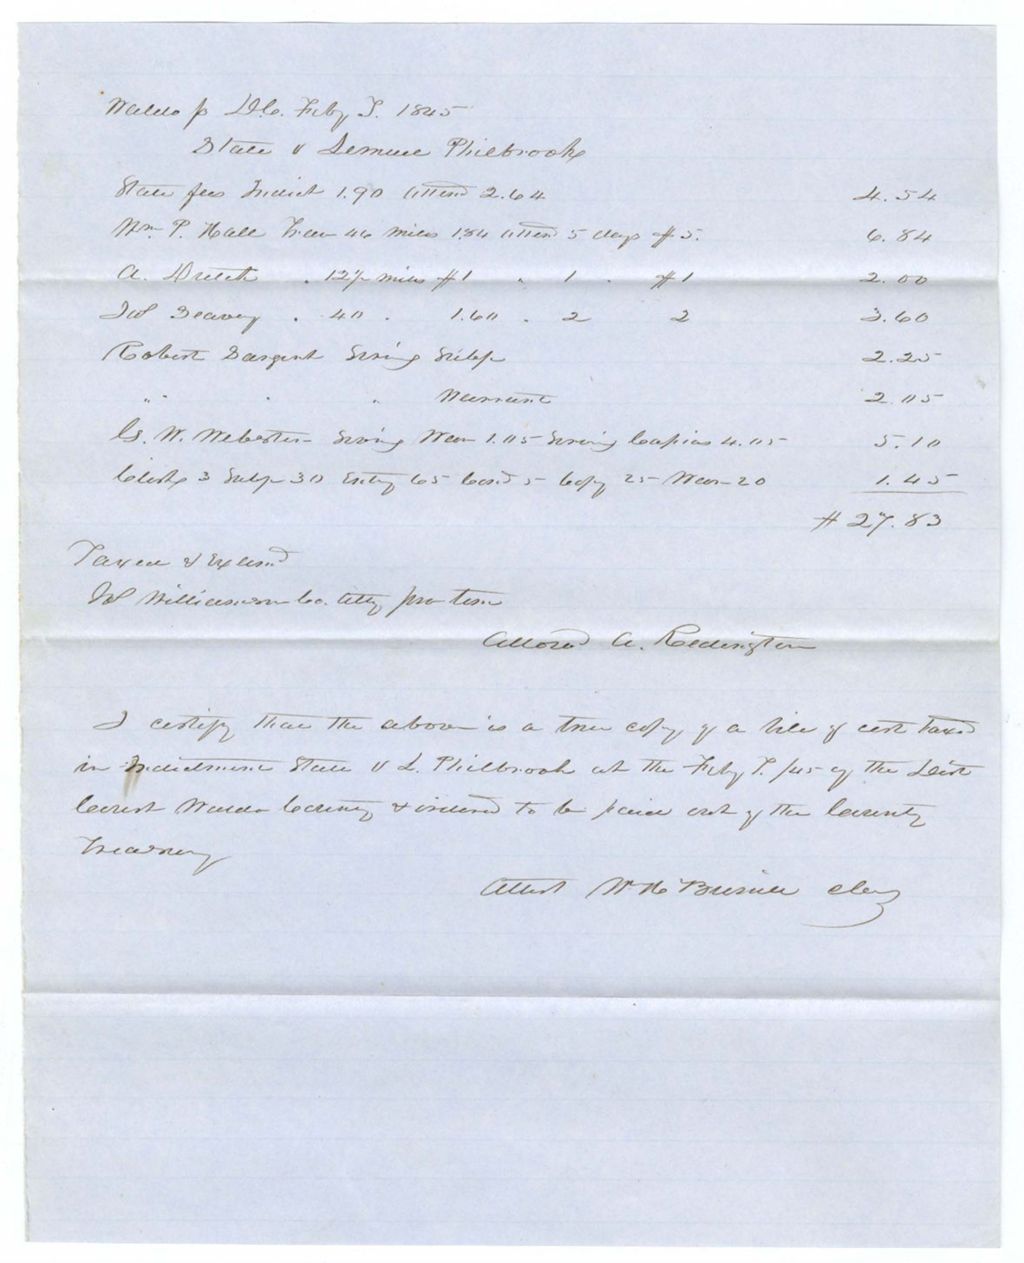 Waldo ss D.C. Feby T. 1845
State v Lemuel Philbrook
State fees Indict 1.90 Attend 2.64 4.54
Wm P. Hall Trav 46 miles 1.84 Atten 5 days $5. 6.84
A. " 12½ miles $1 " 1 " $1 2.00
" 40 " 1.60 " 2 2 3.60
Robert Sargent Serving Subp 2.25
" " " Warrant 2.05
G. W. Webster Serving War 1.05 Serving Capias 4.05 5.10
Clerk 3 Subp 30 Entry 65 Cond 5 Copy 25 War 20 1.45
$27.83
Taxed & Examd
Williamson Co. Atty pro tem
Allowed A. Redington
I certify that the above is a true copy of a bile of cost taxed
in Indictment State v L. Philbrook at the Feby T. /45 of the Dist
Court Waldo County & ordered to be paid out of the County
Treasury
Attest Clerk